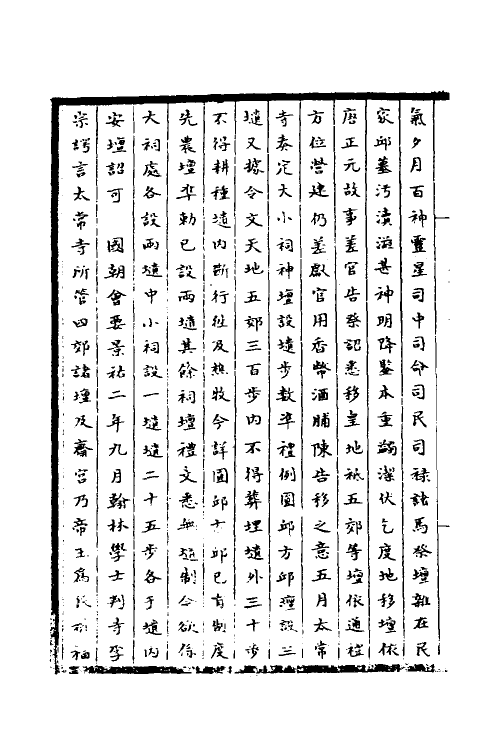 氣夕月百神靈星司中司命司民司祿諸馬祭壇雜在民
家邱墓污瀆滋甚神明降鑒本重蠲潔伏乞度地移壇依
唐正元故事差官告祭詔悉移皇地祇五郊等壇依通禮
方位營建仍差獻官用香幣酒脯陳告移之意五月太常
寺奏定大小祠神壇設壝步數準禮例圜邱方邱壇設三
壝又據令文天地五郊三百步內不得葬埋壝外三十步
不得耕種壝內斷行徑及樵牧今詳圜邱方邱已有制度
先農壇準勅已設兩壝其餘祠壇禮文悉無壝制今欲係
大祠處各設兩壝中小祠設一壝壝二十五步各于壝內
安壇詔可　國朝會要景祐二年九月翰林學士判寺李
宗諤言太常寺所管四郊諸壇及齋宮乃帝王為民祈福